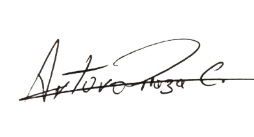 Arturo Roza C.